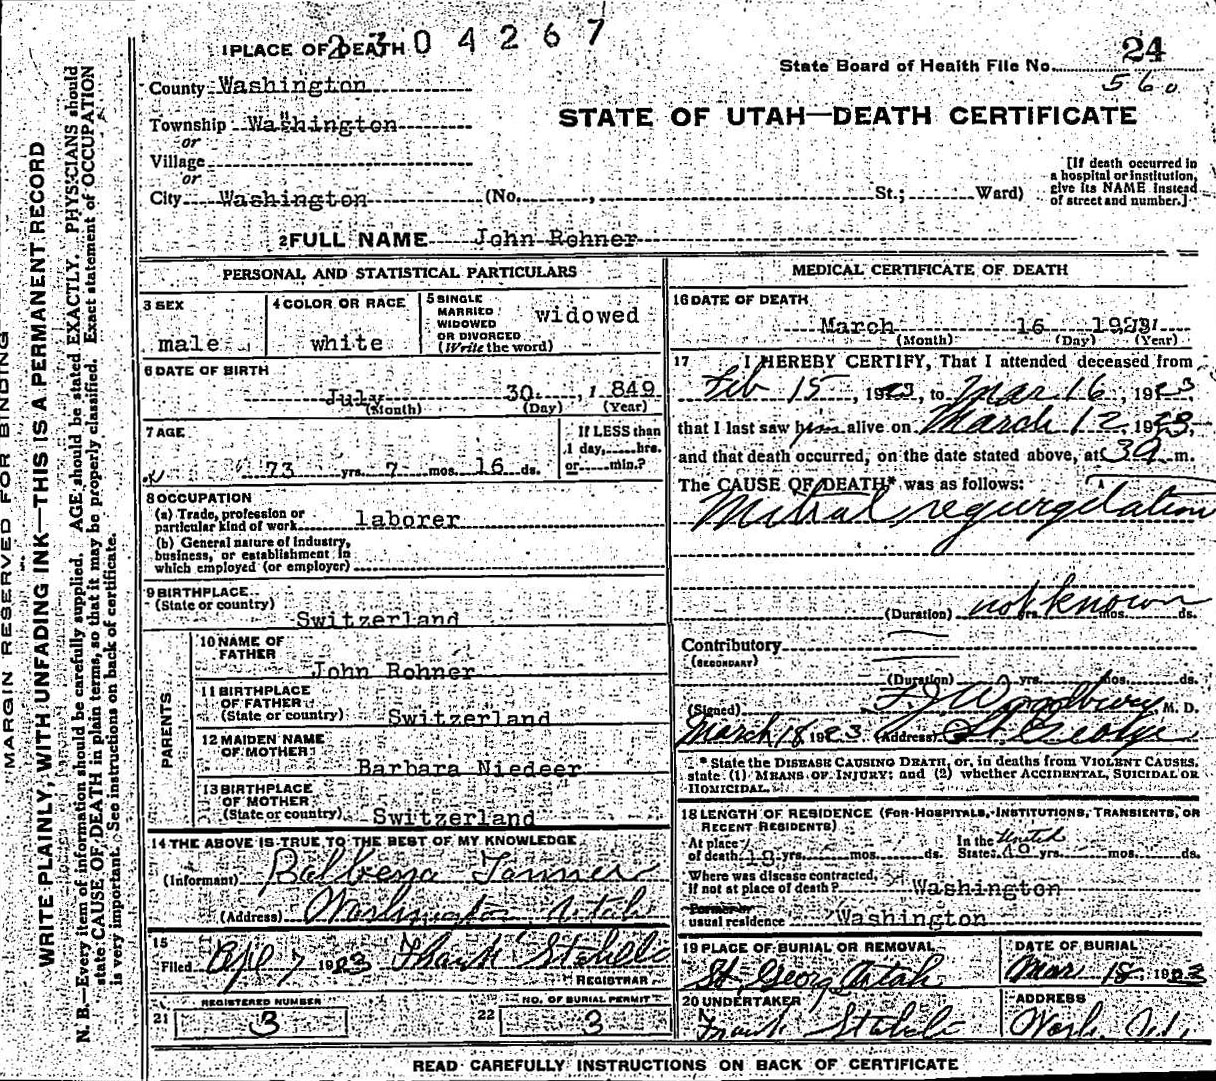 2304267
1 PLACE OF DEATH
24
State Board of Health File No.
560
County Washington
Township Washington
or
Village
or
City Washington (No. , St.; Ward)
STATE OF UTAH—DEATH CERTIFICATE
[If death occurred in
a hospital or institution,
give its NAME instead
of street and number.]
2 FULL NAME John Rohner
PERSONAL AND STATISTICAL PARTICULARS
3 SEX
male
4 COLOR OR RACE
white
5 SINGLE
MARRIED
WIDOWED
OR DIVORCED
(Write the word)
widowed
6 DATE OF BIRTH
July 30 , 1849
(Month) (Day) (Year)
7 AGE
73 yrs. 7 mos. 16 ds.
If LESS than
1 day, hrs.
or min.?
8 OCCUPATION
(a) Trade, profession or
particular kind of work laborer
(b) General nature of industry,
business, or establishment in
which employed (or employer)
9 BIRTHPLACE
(State or country)
Switzerland
PARENTS
10 NAME OF
FATHER
John Rohner
11 BIRTHPLACE
OF FATHER
(State or country) Switzerland
12 MAIDEN NAME
OF MOTHER
Barbara Niedeer
13 BIRTHPLACE
OF MOTHER
(State or country) Switzerland
14 THE ABOVE IS TRUE TO THE BEST OF MY KNOWLEDGE
(Informant) Balbena Tanner
(Address) Washington Utah
15
Filed Apl 7 1923 Frank Stahelli
REGISTRAR
REGISTERED NUMBER
21 3
NO. OF BURIAL PERMIT
22 3
MEDICAL CERTIFICATE OF DEATH
16 DATE OF DEATH
March 16 1923
(Month) (Day) (Year)
17 I HEREBY CERTIFY, That I attended deceased from
Feb 15, 1923, to Mar 16, 1923,
that I last saw him alive on March 12, 1923,
and that death occurred, on the date stated above, at 3 a m.
The CAUSE OF DEATH* was as follows:
Mitral regurgitation
(Duration) not known yrs. mos. ds.
Contributory
(SECONDARY)
(Duration) yrs. mos. ds.
(Signed) F J Woodbury M. D.
March 18 1923 (Address) St George
* State the DISEASE CAUSING DEATH, or, in deaths from VIOLENT CAUSES,
state (1) MEANS OF INJURY; and (2) whether ACCIDENTAL, SUICIDAL OR
HOMICIDAL.
18 LENGTH OF RESIDENCE (FOR HOSPITALS, INSTITUTIONS, TRANSIENTS, OR
RECENT RESIDENTS)
At place
of death yrs. mos. ds.
In the United
States yrs. mos. ds.
Where was disease contracted,
if not at place of death? Washington
Former or
usual residence Washington
19 PLACE OF BURIAL OR REMOVAL
St. George Utah
DATE OF BURIAL
Mar 18 1923
20 UNDERTAKER
Frank Staheli
ADDRESS
Wash.
READ CAREFULLY INSTRUCTIONS ON BACK OF CERTIFICATE
MARGIN RESERVED FOR BINDING
WRITE PLAINLY, WITH UNFADING INK—THIS IS A PERMANENT RECORD
N. B.—Every item of information should be carefully supplied. AGE should be stated EXACTLY. PHYSICIANS should
state CAUSE OF DEATH in plain terms, so that it may be properly classified. Exact statement of OCCUPATION
is very important. See instructions on back of certificate.